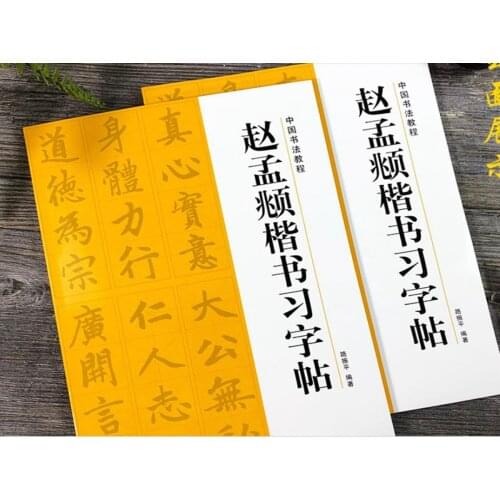 中国书法教程
赵孟𫖯楷书习字帖
路振平 编著
真心實意大公無
身體力行仁人志
道德為宗廣開言
中国书法教程
赵孟𫖯楷书习字帖
路振平 编著